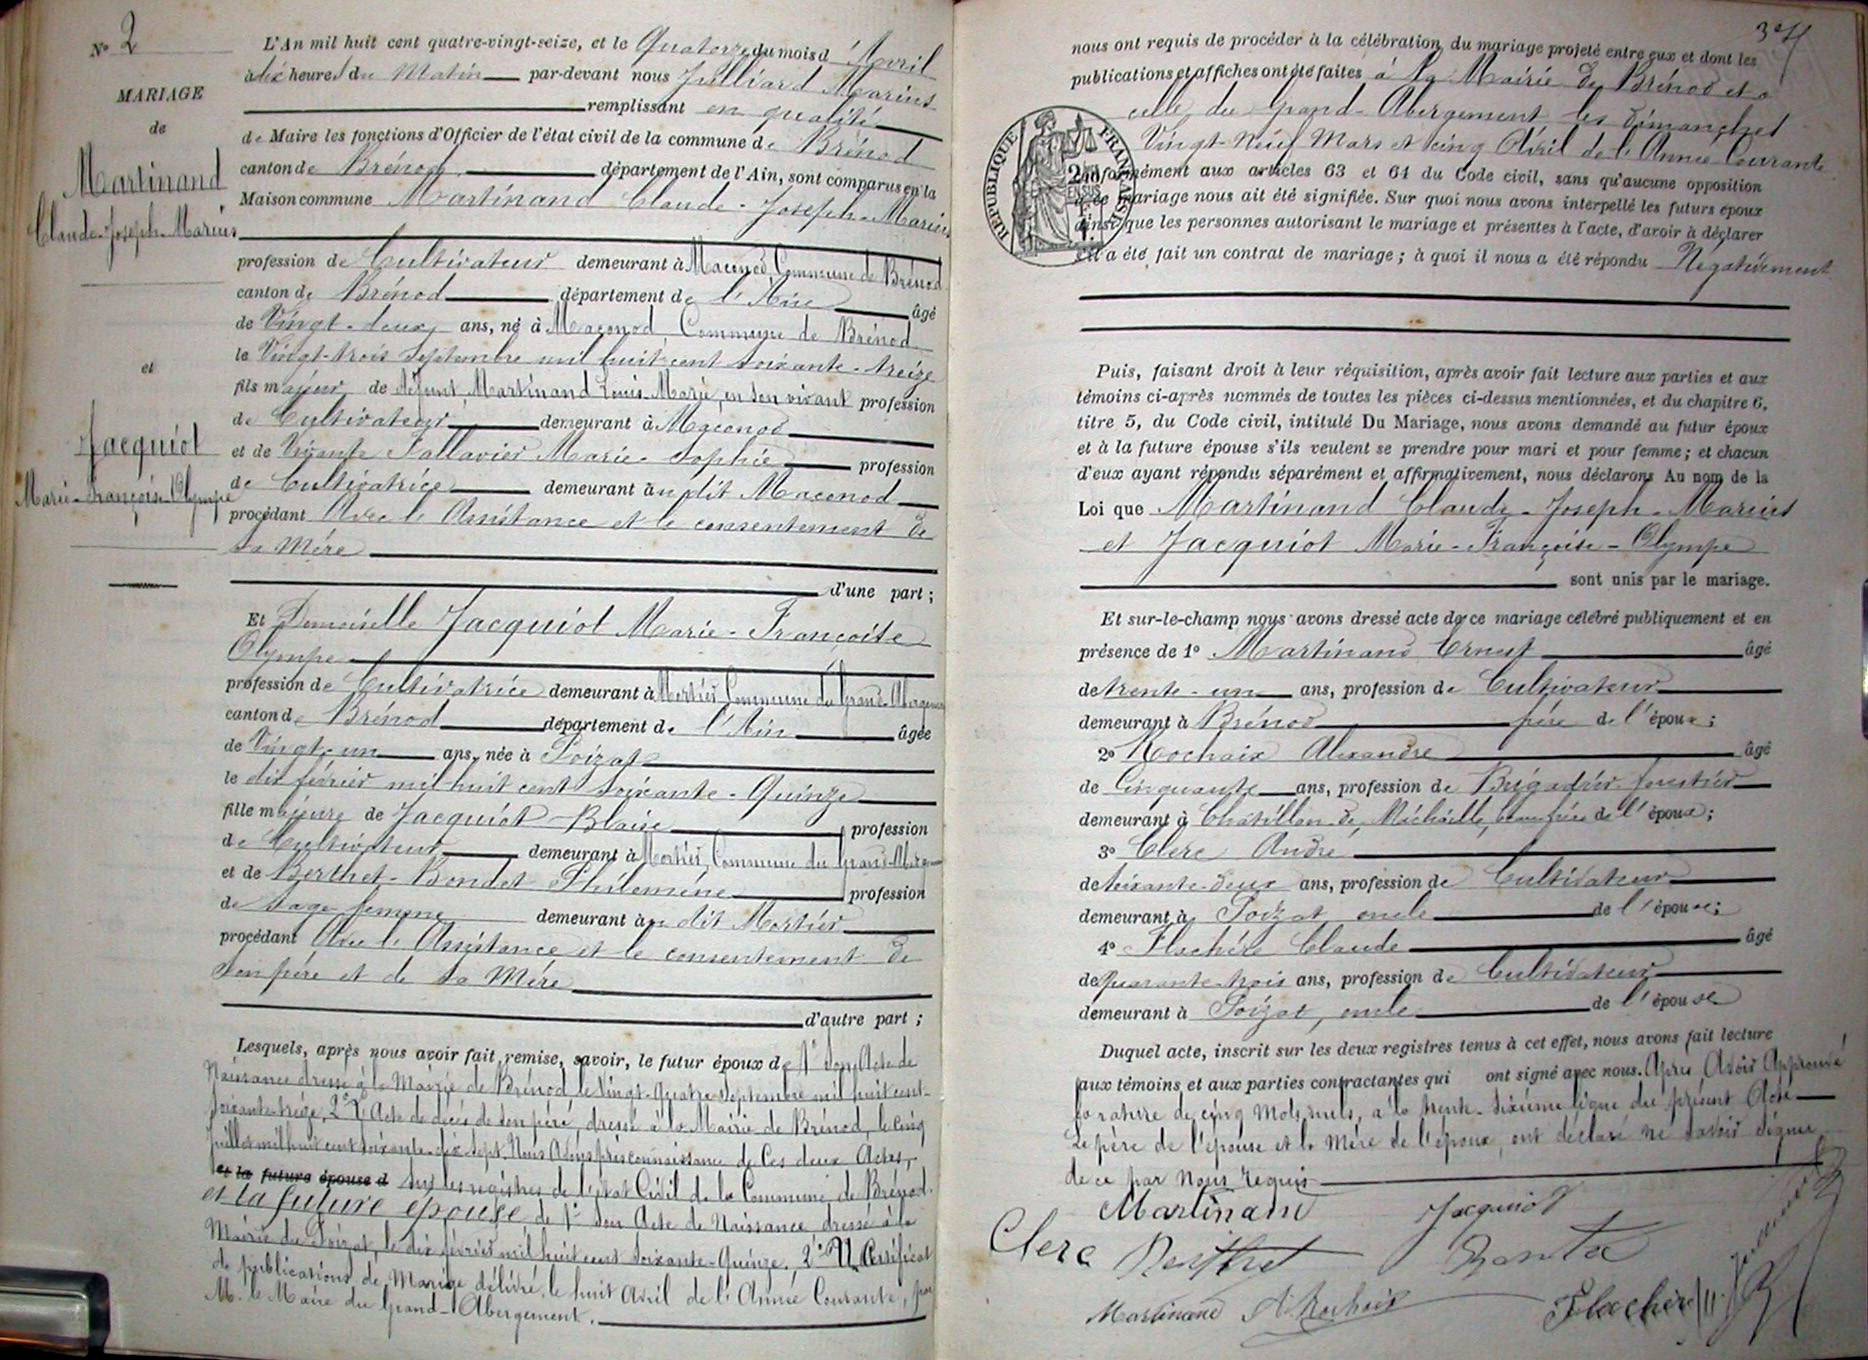 N° 2
MARIAGE
de
Martinand
Claude-Joseph-Marius
et
Jacquiot
Marie-Françoise-Olympe
L'An mil huit cent quatre-vingt-seize, et le Quatorze du mois d'Avril
à dix heures du Matin par-devant nous Julliard Marius
remplissant en qualité
de Maire les fonctions d'Officier de l'état civil de la commune de Brénod
canton de Brénod département de l'Ain, sont comparus en la
Maison commune Martinand Claude-Joseph-Marius
profession de Cultivateur demeurant à Macconod, Commune de Brénod
canton de Brénod département de l'Ain âgé
de Vingt-deux ans, né à Macconod Commune de Brénod
le Vingt-trois Septembre mil huit cent soixante-treize
fils majeur de défunt Martinand Louis-Marie, en son vivant profession
de Cultivateur demeurant à Macconod
et de Vivante Tallavier Marie-Sophie profession
de Cultivatrice demeurant au dit Macconod
procédant Avec l'Assistance et le consentement de
sa Mère
d'une part ;
Et Demoiselle Jacquiot Marie-Françoise
Olympe
profession de Cultivatrice demeurant à Mortier, Commune du Grand-Abergement
canton de Brénod département de l'Ain âgée
de Vingt-un ans, née à Poizat
le dix février mil huit cent soixante-Quinze
fille majeure de Jacquiot Blaise profession
de Cultivateur demeurant à Mortier, Commune du Grand-Abergement
et de Berthet-Bondet Philomène profession
de Sage femme demeurant au dit Mortier
procédant Avec l'Assistance et le consentement de
son père et de sa Mère
d'autre part ;
Lesquels, après nous avoir fait remise, savoir, le futur époux de 1° Son Acte de
Naissance dressé à la Mairie de Brénod le Vingt-Quatre Septembre mil huit cent
soixante-treize, 2° l'Acte de décès de son père, dressé à la Mairie de Brénod, le cinq
Juillet mil huit cent soixante-dix sept. Nous Avons pris connaissance de Ces deux Actes,
et la future épouse d sur les registres de l'état Civil de la Commune de Brénod.
et la future épouse de 1° Son Acte de Naissance dressé à la
Mairie du Poizat, le dix février mil huit cent soixante-Quinze. 2° Un Certificat
de publications de Mariage délivré le huit Avril de l'Année Courante, par
M. le Maire du Grand-Abergement.
nous ont requis de procéder à la célébration du mariage projeté entre eux et dont les
publications et affiches ont été faites à la Mairie de Brénod et à
celle du Grand-Abergement les Dimanches
Vingt-Neuf Mars et cinq Avril de l'Année Courante
conformément aux articles 63 et 64 du Code civil, sans qu'aucune opposition
à ce mariage nous ait été signifiée. Sur quoi nous avons interpellé les futurs époux
ainsi que les personnes autorisant le mariage et présentes à l'acte, d'avoir à déclarer
s'il a été fait un contrat de mariage ; à quoi il nous a été répondu Négativement
RÉPUBLIQUE FRANÇAISE
Puis, faisant droit à leur réquisition, après avoir fait lecture aux parties et aux
témoins ci-après nommés de toutes les pièces ci-dessus mentionnées, et du chapitre 6,
titre 5, du Code civil, intitulé Du Mariage, nous avons demandé au futur époux
et à la future épouse s'ils veulent se prendre pour mari et pour femme ; et chacun
d'eux ayant répondu séparément et affirmativement, nous déclarons Au nom de la
Loi que Martinand Claude-Joseph-Marius
et Jacquiot Marie-Françoise-Olympe
sont unis par le mariage.
Et sur-le-champ nous avons dressé acte de ce mariage célébré publiquement et en
présence de 1° Martinand Ernest âgé
de trente-un ans, profession de Cultivateur
demeurant à Brénod frère de l'époux ;
2° Rochaix Alexandre âgé
de Cinquante ans, profession de Brigadier forestier
demeurant à Châtillon de Michaille, beau frère de l'époux ;
3° Clerc André
de soixante-deux ans, profession de Cultivateur
demeurant à Poizat oncle de l'épouse ;
4° Flochère Claude âgé
de quarante-trois ans, profession de Cultivateur
demeurant à Poizat, oncle de l'épouse
Duquel acte, inscrit sur les deux registres tenus à cet effet, nous avons fait lecture
aux témoins et aux parties contractantes qui ont signé avec nous. Après Avoir Approuvé
la rature de cinq Mots nuls, à la trente-sixième ligne du présent Acte
Le père de l'épouse et la Mère de l'époux, ont déclaré ne savoir signer
de ce par Nous requis
Martinand Jacquiot
Clerc Berthet
Martinand A. Rochaix Flochère